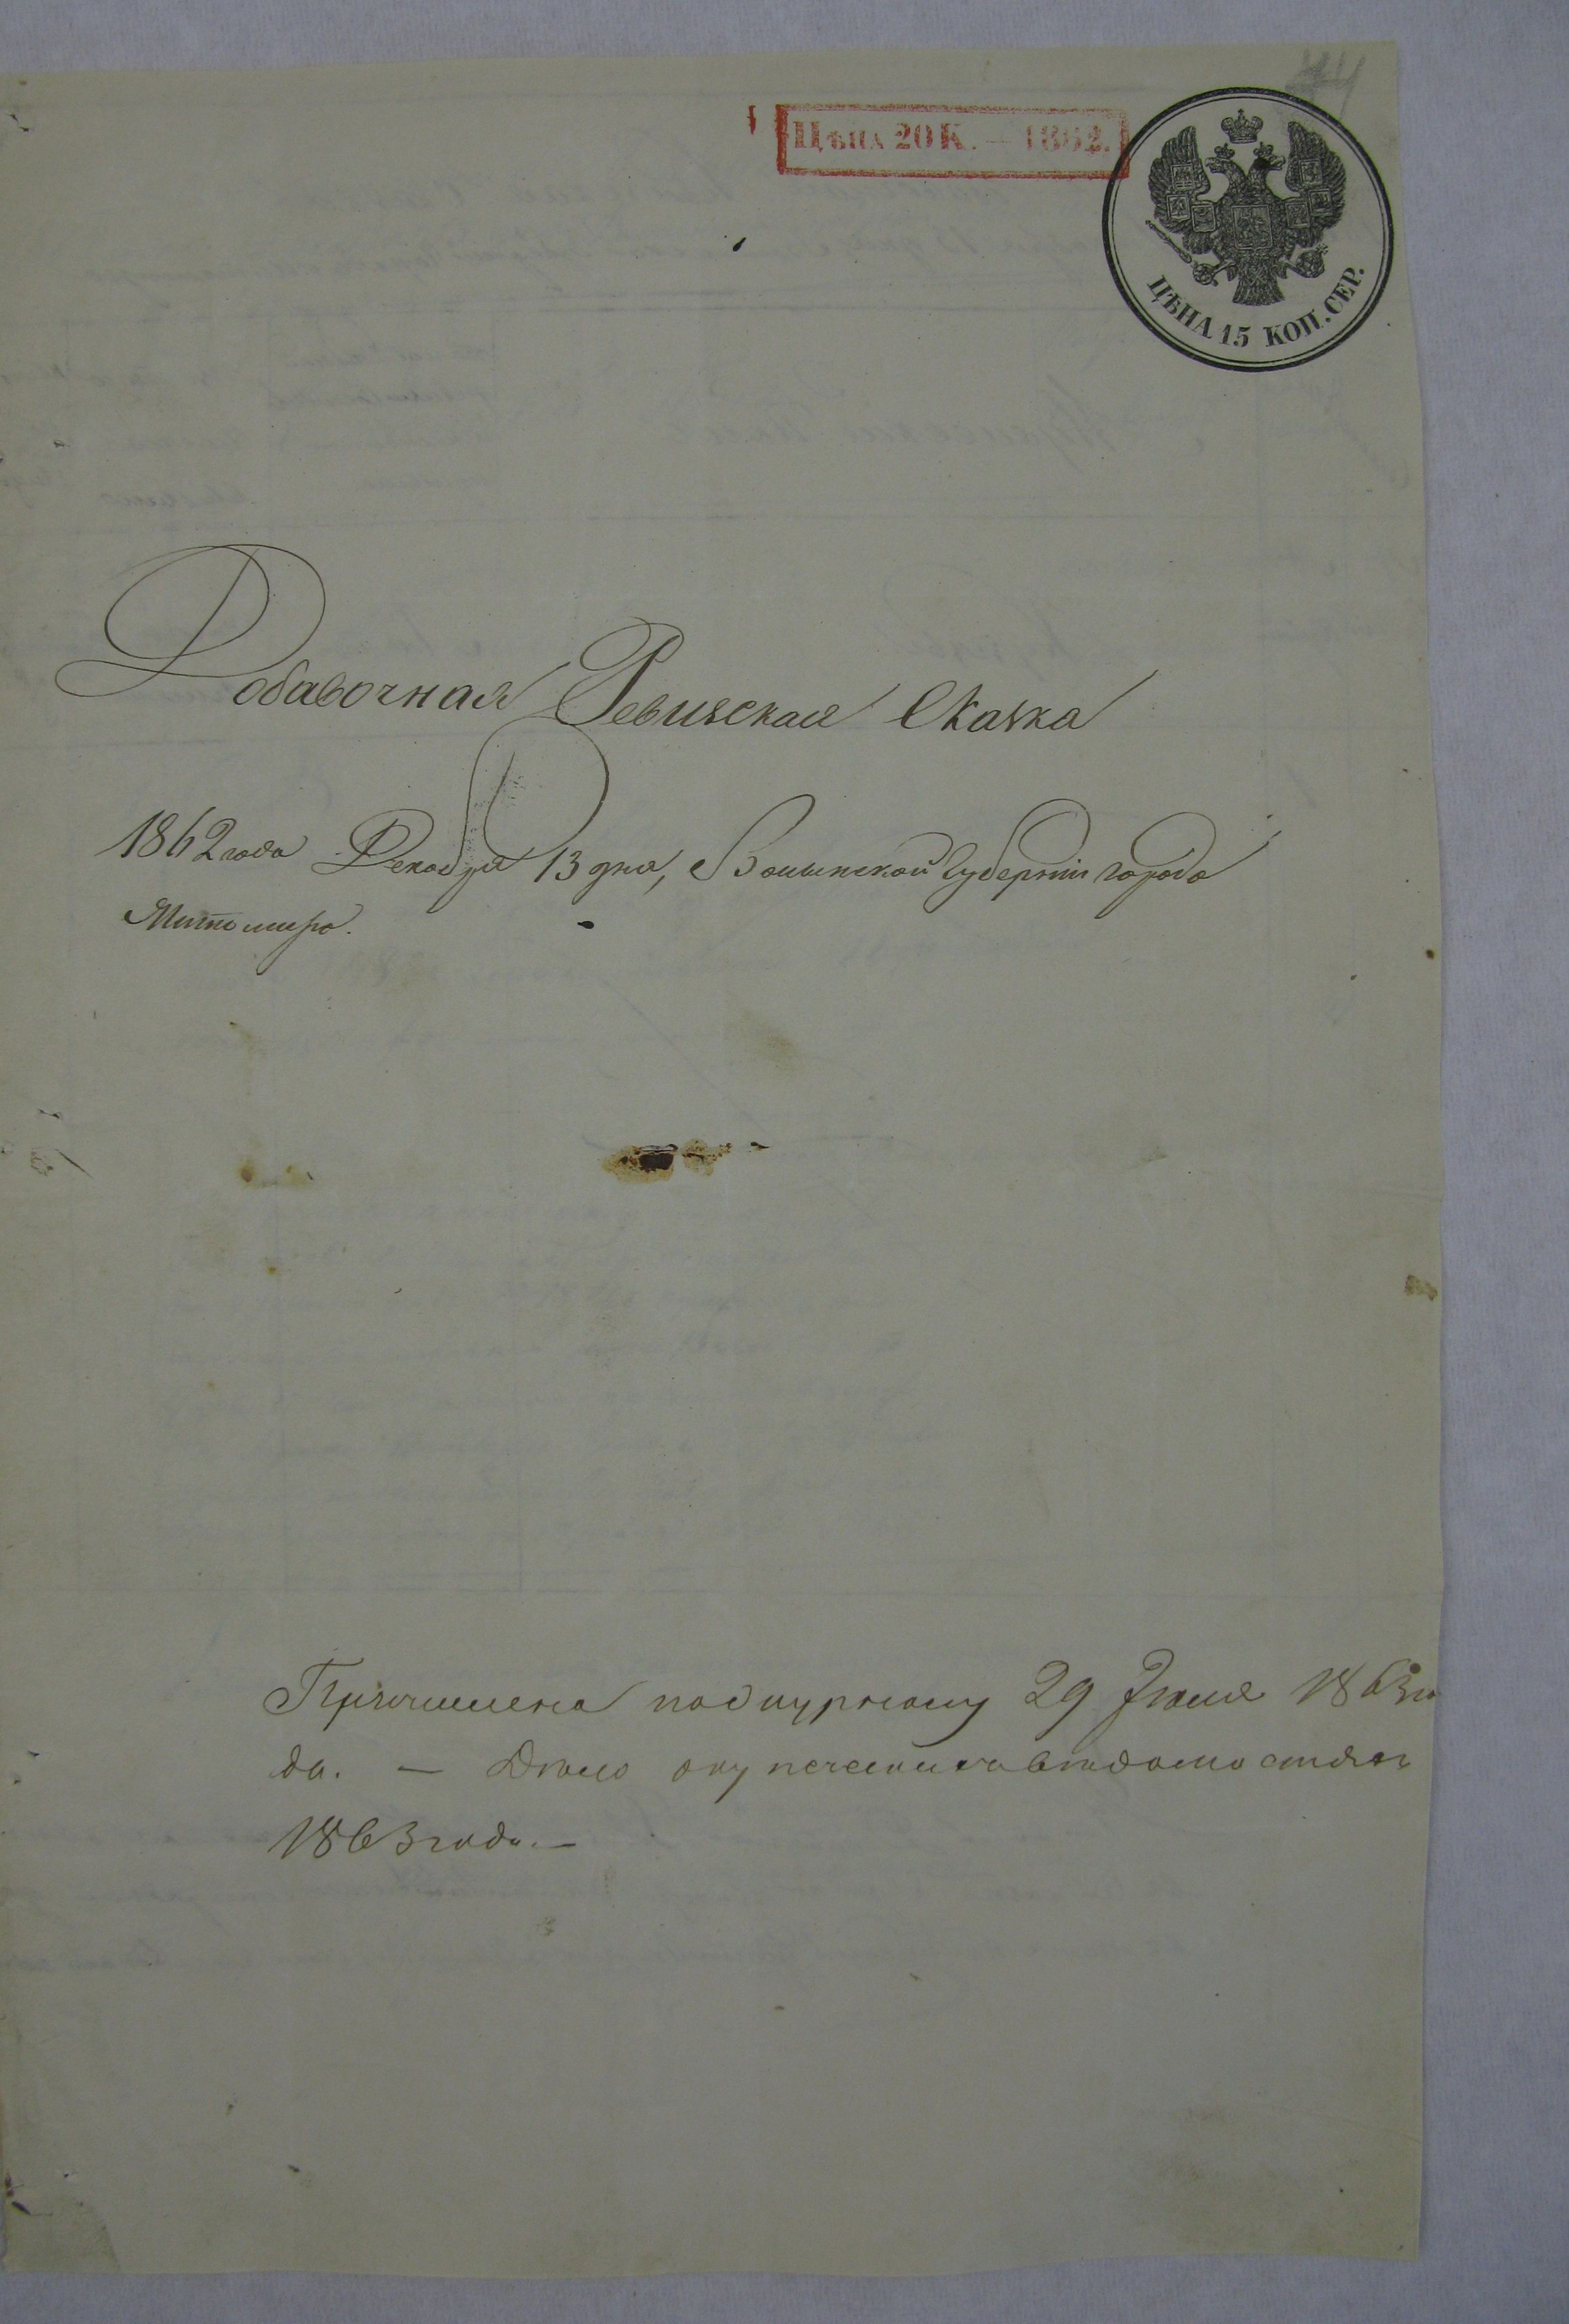 44
Цѣна 20 К. — 1862.
ЦѢНА 15 КОП. СЕР.
Добавочная Ревизская Сказка
1862 года Декабря 13 дня, Волынской Губерніи города
Житомира.
Причислена по 29 Июля 1863 го
да. — Дѣло о купеческихъ вѣдомостяхъ
1863 года. —